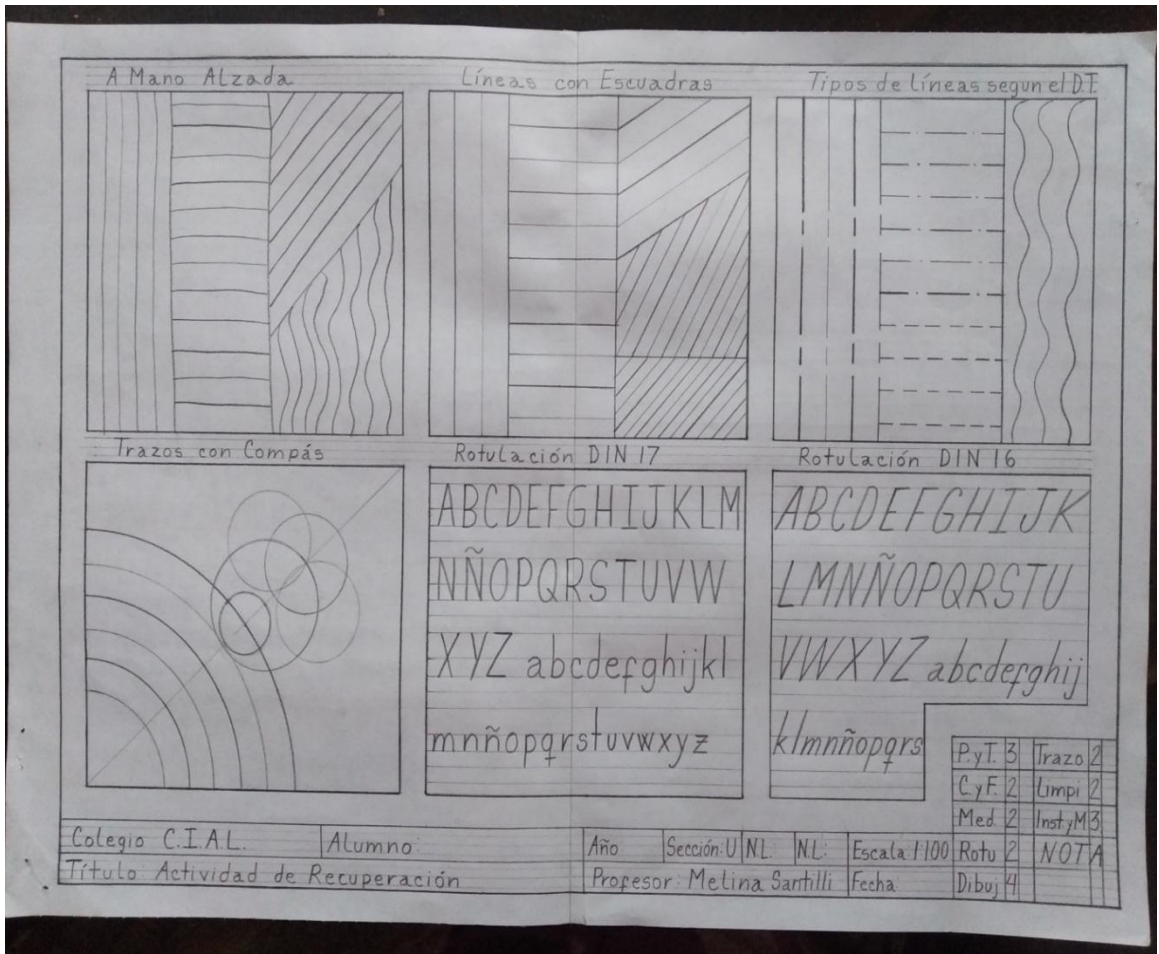 A Mano Alzada
Líneas con Escuadras
Tipos de líneas segun el D.T.
Trazos con Compás
Rotulación DIN 17
ABCDEFGHIJKLM
NÑOPQRSTUVW
XYZ abcdefghijkl
mnñopqrstuvwxyz
Rotulación DIN 16
ABCDEFGHIJK
LMNÑOPQRSTU
VWXYZ abcdefghij
klmnñopqrs
P.yT. 3 Trazo 2
C.yF. 2 Limpi 2
Med 2 Inst.yM 3
Rotu 2 NOTA
Dibuj 4
Colegio C.I.A.L. Alumno: Año Sección: U N.L. N.L: Escala 1:100
Título: Actividad de Recuperación Profesor: Melina Santilli Fecha